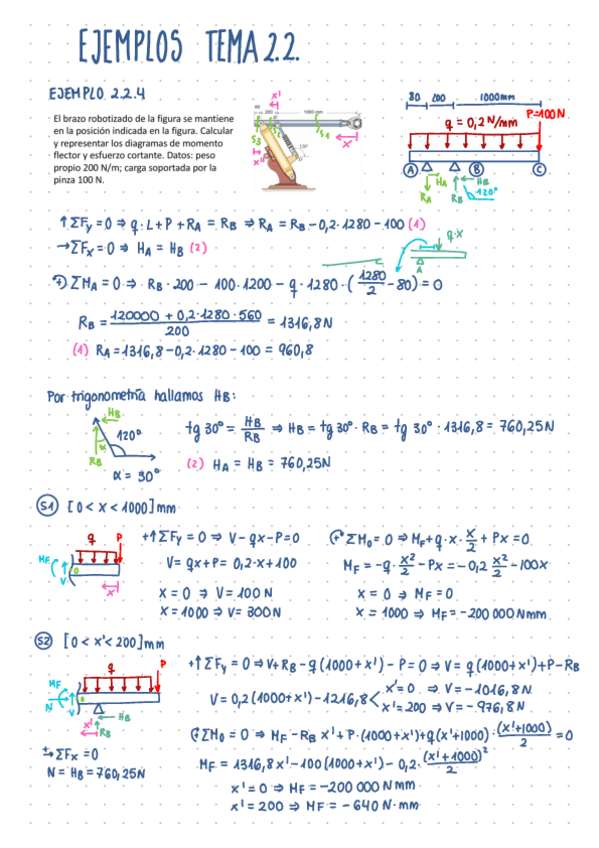 EJEMPLOS TEMA 2.2.
EJEMPLO 2.2.4
El brazo robotizado de la figura se mantiene
en la posición indicada en la figura. Calcular
y representar los diagramas de momento
flector y esfuerzo cortante. Datos: peso
propio 200 N/m; carga soportada por la
pinza 100 N.
x'
80
200
1000 mm
S3
S2
S1
x
x''
80 200 1000mm
P=100N
q = 0,2 N/mm
A B C
HA HB
RA RB 120º
↑ΣFy = 0 ⇒ q·L+P+RA = RB ⇒ RA = RB - 0,2·1280 - 100 (1)
→ΣFx = 0 ⇒ HA = HB (2)
q·x
A
ΣMA = 0 ⇒ RB·200 - 100·1200 - q·1280·(1280/2 - 80) = 0
RB = (120000 + 0,2·1280·560)/200 = 1316,8N
(1) RA = 1316,8 - 0,2·1280 - 100 = 960,8
Por trigonometría hallamos HB:
HB
120º
α
RB
α = 30º
tg 30º = HB/RB ⇒ HB = tg 30º·RB = tg 30º·1316,8 = 760,25N
(2) HA = HB = 760,25N
S1 [0 < x < 1000] mm
q P
MF
V
x
+↑ΣFy = 0 ⇒ V - qx - P = 0
V = qx + P = 0,2·x + 100
x = 0 ⇒ V = 100 N
x = 1000 ⇒ V = 300N
ΣMo = 0 ⇒ MF + q·x·x/2 + Px = 0
MF = -q·x²/2 - Px = -0,2 x²/2 - 100x
x = 0 ⇒ MF = 0
x = 1000 ⇒ MF = -200 000 Nmm
S2 [0 < x' < 200] mm
q P
MF
N
V
x' HB
RB
→ΣFx = 0
N = HB = 760,25N
+↑ΣFy = 0 ⇒ V + RB - q(1000+x') - P = 0 ⇒ V = q(1000+x') + P - RB
V = 0,2(1000+x') - 1216,8
x' = 0 ⇒ V = -1016,8 N
x' = 200 ⇒ V = -976,8N
ΣMo = 0 ⇒ MF - RB x' + P·(1000+x') + q(x'+1000)·(x'+1000)/2 = 0
MF = 1316,8x' - 100(1000+x') - 0,2·(x'+1000)²/2
x' = 0 ⇒ MF = -200 000 Nmm
x' = 200 ⇒ MF = -640 N·mm